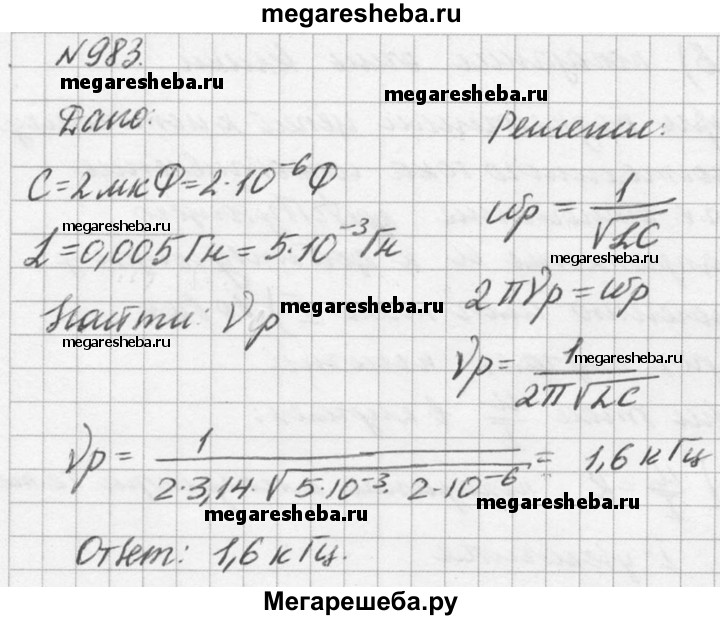 megaresheba.ru
№983.
megaresheba.ru
megaresheba.ru
Дано:
Решение:
C=2мкФ=2·10⁻⁶Ф
megaresheba.ru
L=0,005Гн=5·10⁻³Гн
ωр = 1/√LC
megaresheba.ru
Найти: νр
megaresheba.ru
megaresheba.ru
2πνр=ωр
νр= 1/2π√LC
megaresheba.ru
νр = 1/2·3,14·√5·10⁻³·2·10⁻⁶ = 1,6кГц
megaresheba.ru
megaresheba.ru
Ответ: 1,6кГц.
Мегарешеба.ру